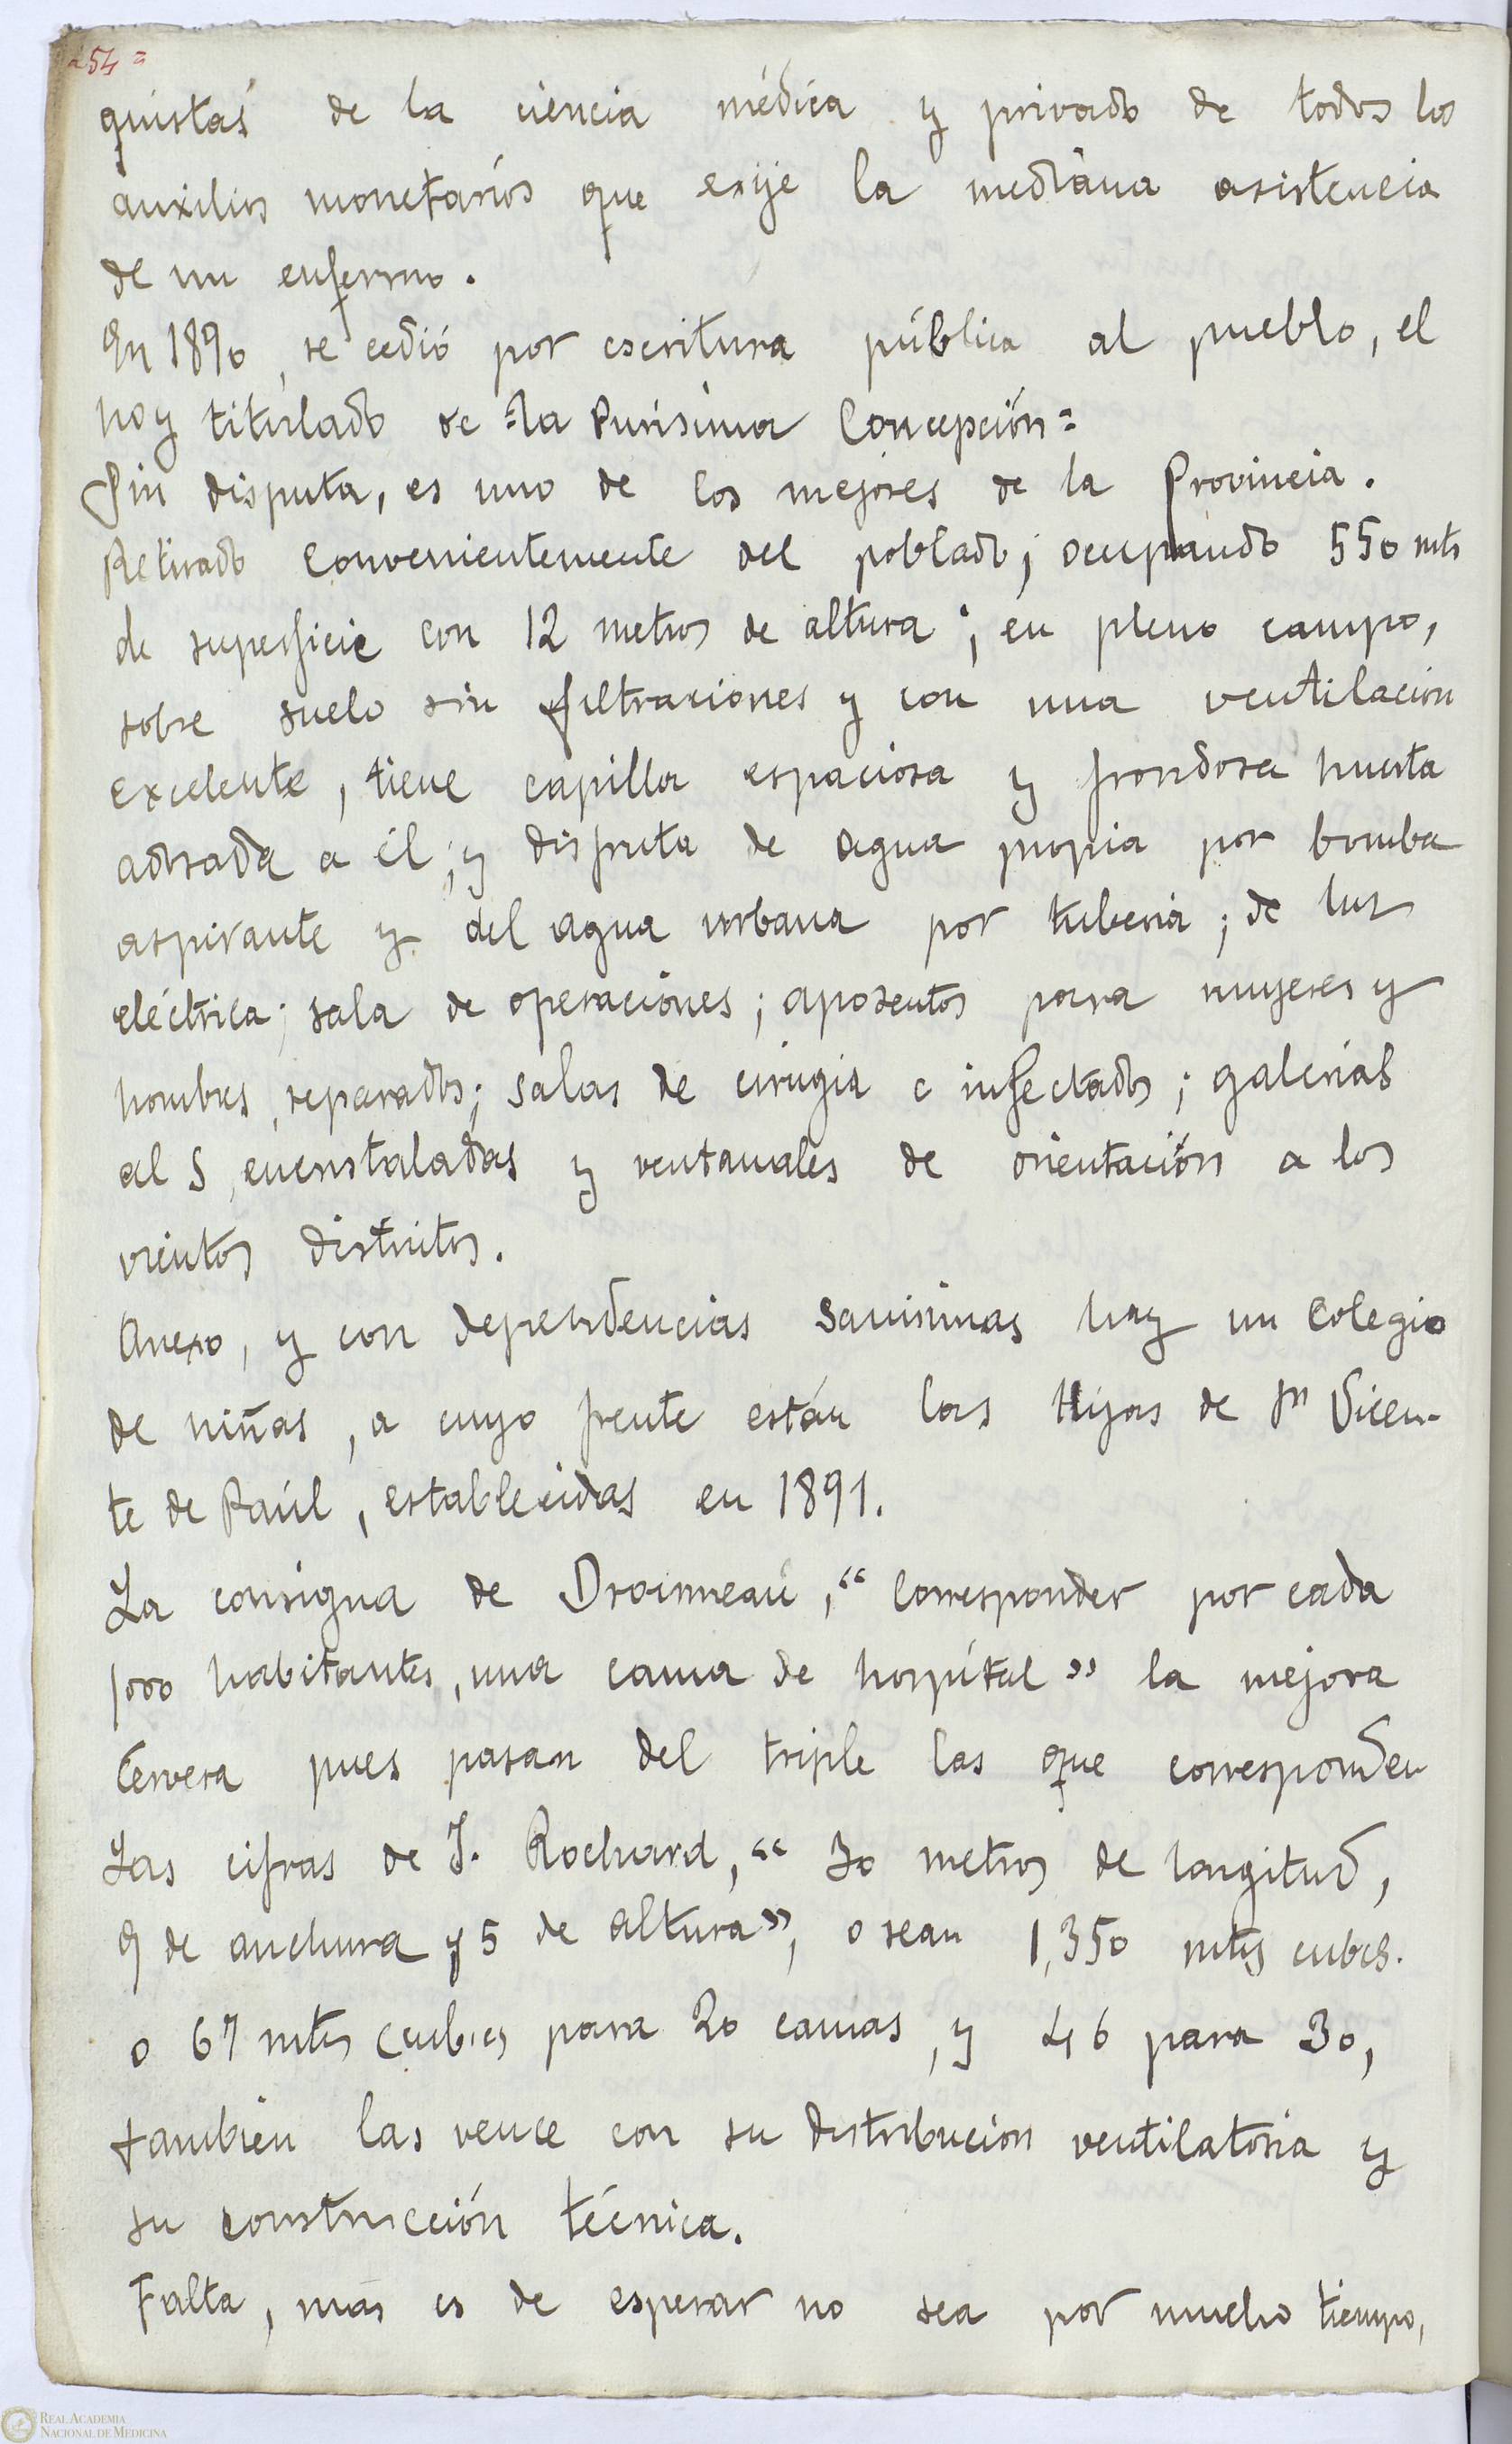 =54=
quistas de la ciencia médica y privado de todos los
auxilios monetarios que exije la mediana asistencia
de un enfermo.
En 1890, se cedió por escritura pública al pueblo, el
hoy titulado de =la Purísima Concepción=
Sin disputa, es uno de los mejores de la Provincia.
Retirado convenientemente del poblado; ocupando 550 mts
de superficie con 12 metros de altura; en pleno campo,
sobre suelo sin filtraciones y con una ventilacion
excelente, tiene capilla espaciosa y frondosa huerta
adosada a él; y disfruta de agua propia por bomba
aspirante y del agua urbana por tuberia; de luz
eléctrica; sala de operaciones; aposentos para mujeres y
hombres, separados; salas de cirugia e infectados; galerias
al S, encristaladas y ventanales de orientación a los
vientos distintos.
Anexo, y con dependencias sanisimas hay un Colegio
de niñas, a cuyo frente están las Hijas de Sn Vicen-
te de Paúl, establecidas en 1891.
La consigna de Droinneaú, "corresponder por cada
1000 habitantes, una cama de hospítal" la mejora
Cervera pues pasan del triple las que corresponden
Las cifras de J. Rochard, "30 metros de longitud,
9 de anchura y 5 de altura", o sean 1,350 mts cubcs.
o 67 mts cubics para 20 camas, y 46 para 30,
tambien las vence con su distribucion ventilatoria y
su construcción técnica.
Falta, mas es de esperar no sea por mucho tiempo,
REAL ACADEMIA
NACIONAL DE MEDICINA